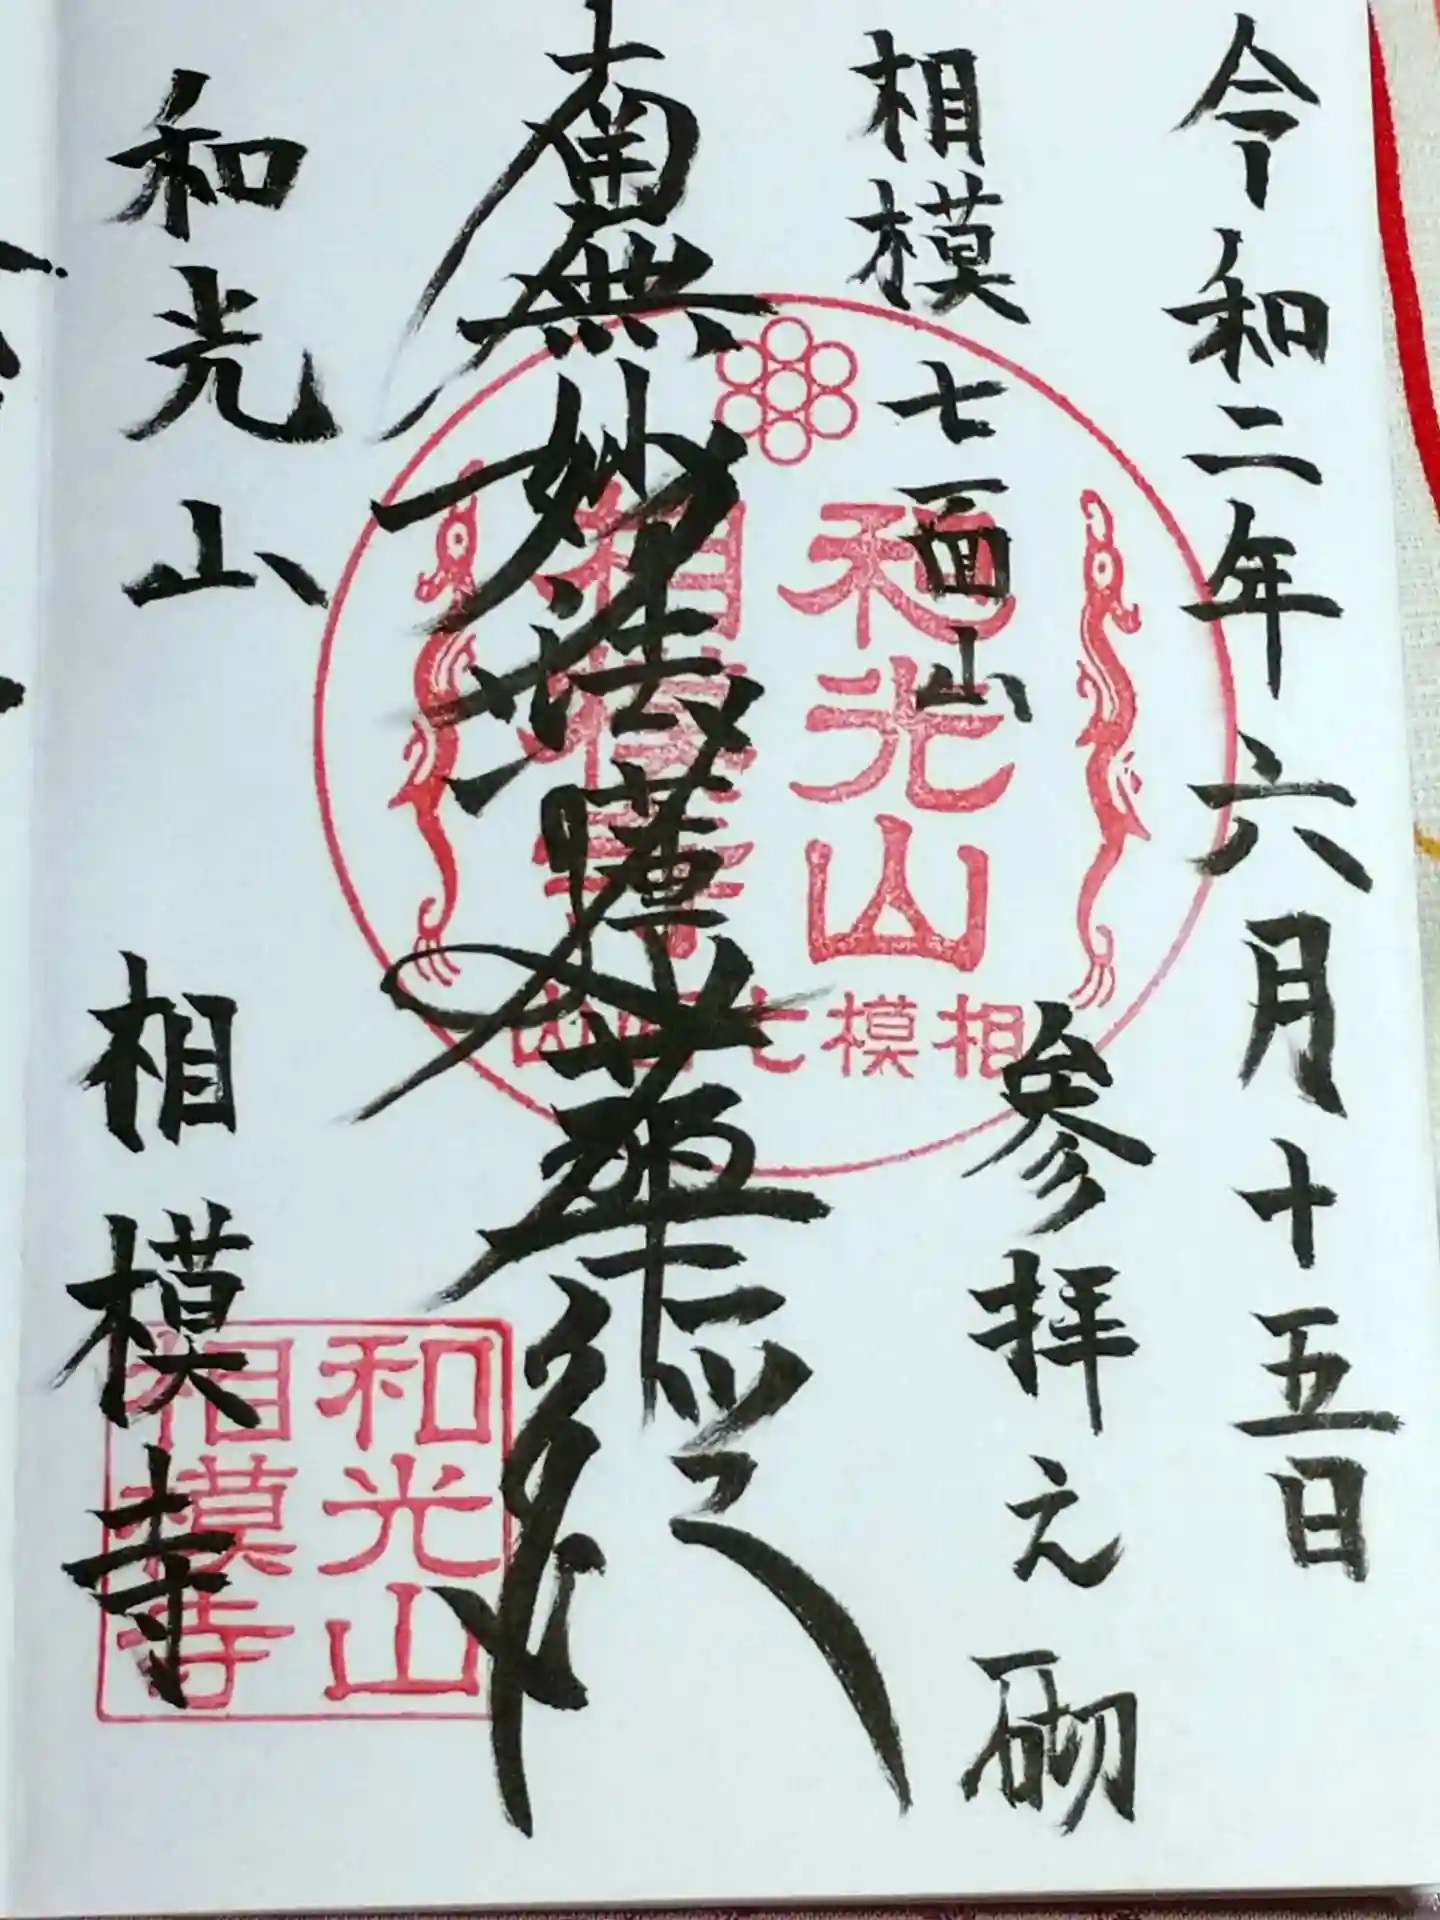 令和二年六月十五日
相模七面山
参拝之砌
南無妙法蓮華経
和光山
相模寺
和光山
相模寺
相模七面山
和光山
相模寺